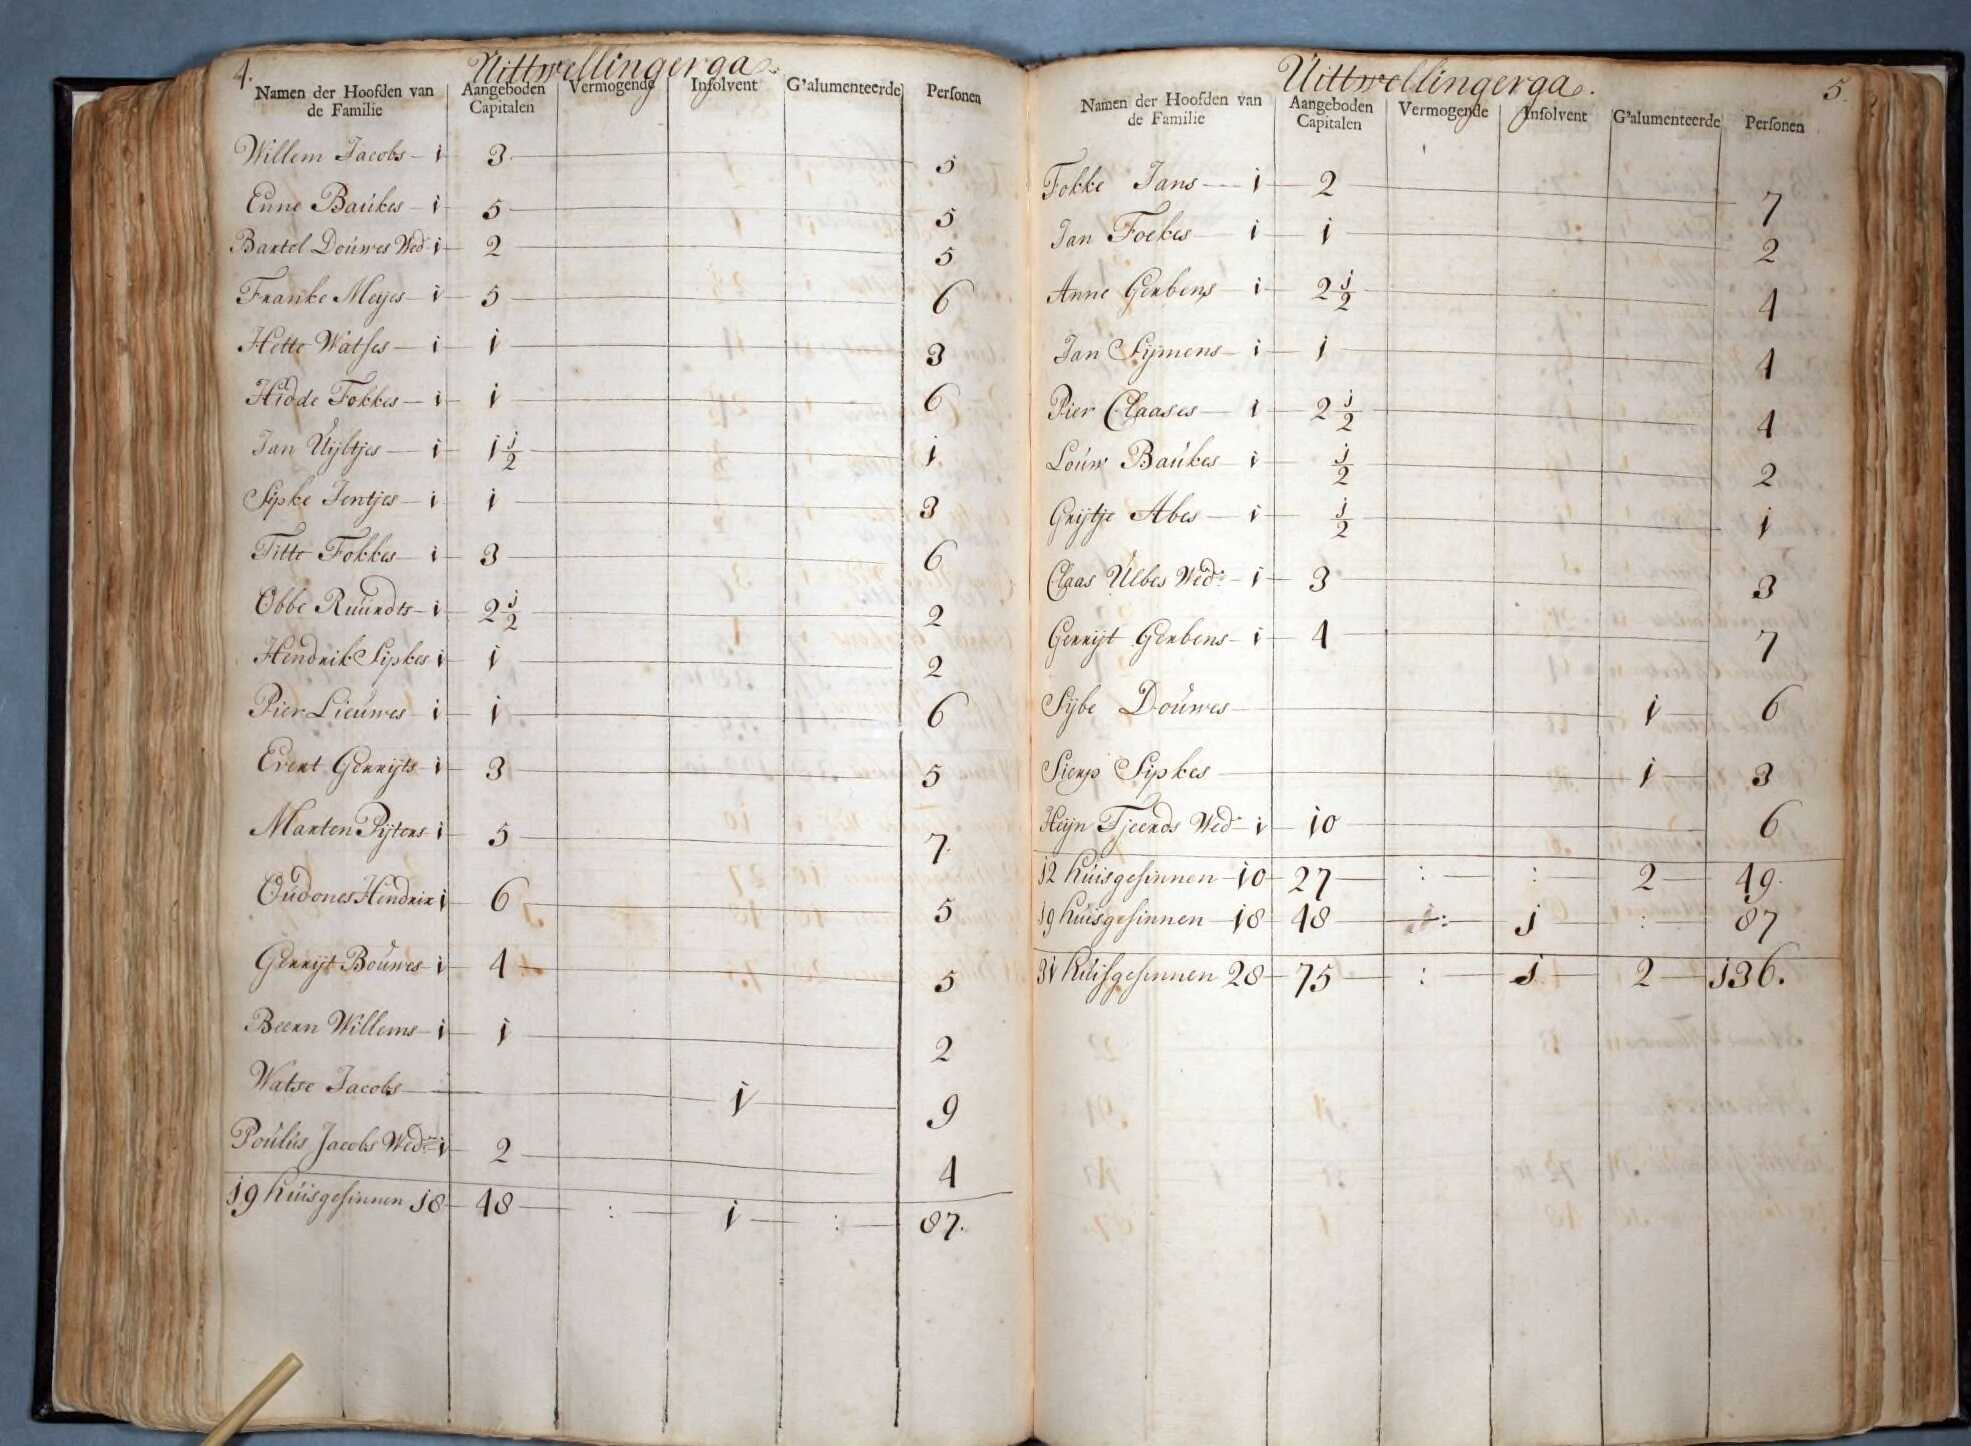 4. Uittwellingerga.
Namen der Hoofden van de Familie | Aangeboden Capitalen | Vermogende | Insolvent | G'alumenteerde | Personen
Willem Jacobs — 1 — 3 — 5
Eune Baukes — 1 — 5 — 5
Bartel Douwes Wed 1 — 2 — 5
Franke Meijes — 1 — 5 — 6
Hette Watses — 1 — 1 — 3
Hidde Fokkes — 1 — 1 — 6
Jan Uijltjes — 1 — 1 1/2 — 1
Sipke Jentjes — 1 — 1 — 3
Titte Fokkes — 1 — 3 — 6
Obbe Ruurdts — 1 — 2 1/2 — 2
Hendrik Sipkes 1 — 1 — 2
Pier Lieuwes — 1 — 1 — 6
Evert Gerrijts — 1 — 3 — 5
Marten Pijters 1 — 5 — 7.
Oudones Hindrix 1 — 6 — 5
Gerrijt Bouwes — 1 — 4 — 5
Beern Willems — 1 — 1 — 2
Watse Jacobs — 1 — 9
Poulus Jacobs Wed: 1 — 2 — 4
19 huisgesinnen 18 — 48 — : — 1 — : — 87.
Uittwellingerga. 5.
Namen der Hoofden van de Familie | Aangeboden Capitalen | Vermogende | Insolvent | G'alumenteerde | Personen
Fokke Jans — 1 — 2 — 7
Jan Foekes — 1 — 1 — 2
Anne Gerbens — 1 — 2 1/2 — 4
Jan Sijmens — 1 — 1 — 4
Pier Claases — 1 — 2 1/2 — 4
Louw Baukes — 1 — 1/2 — 2
Grijtje Abes — 1 — 1/2 — 1
Claas Ulbes Wed: — 1 — 3 — 3
Gerrijt Gerbens — 1 — 4 — 7
Sijbe Douwes — 1 — 6
Sierp Sipkes — 1 — 3
Heijn Tjeerds Wed: 1 — 10 — 6
12 huisgesinnen — 10 — 27 — : — : — 2 — 49.
19 huisgesinnen — 18 — 48 — : — 1 — : — 87
31 huisgesinnen 28 — 75 — : — 1 — 2 — 136.